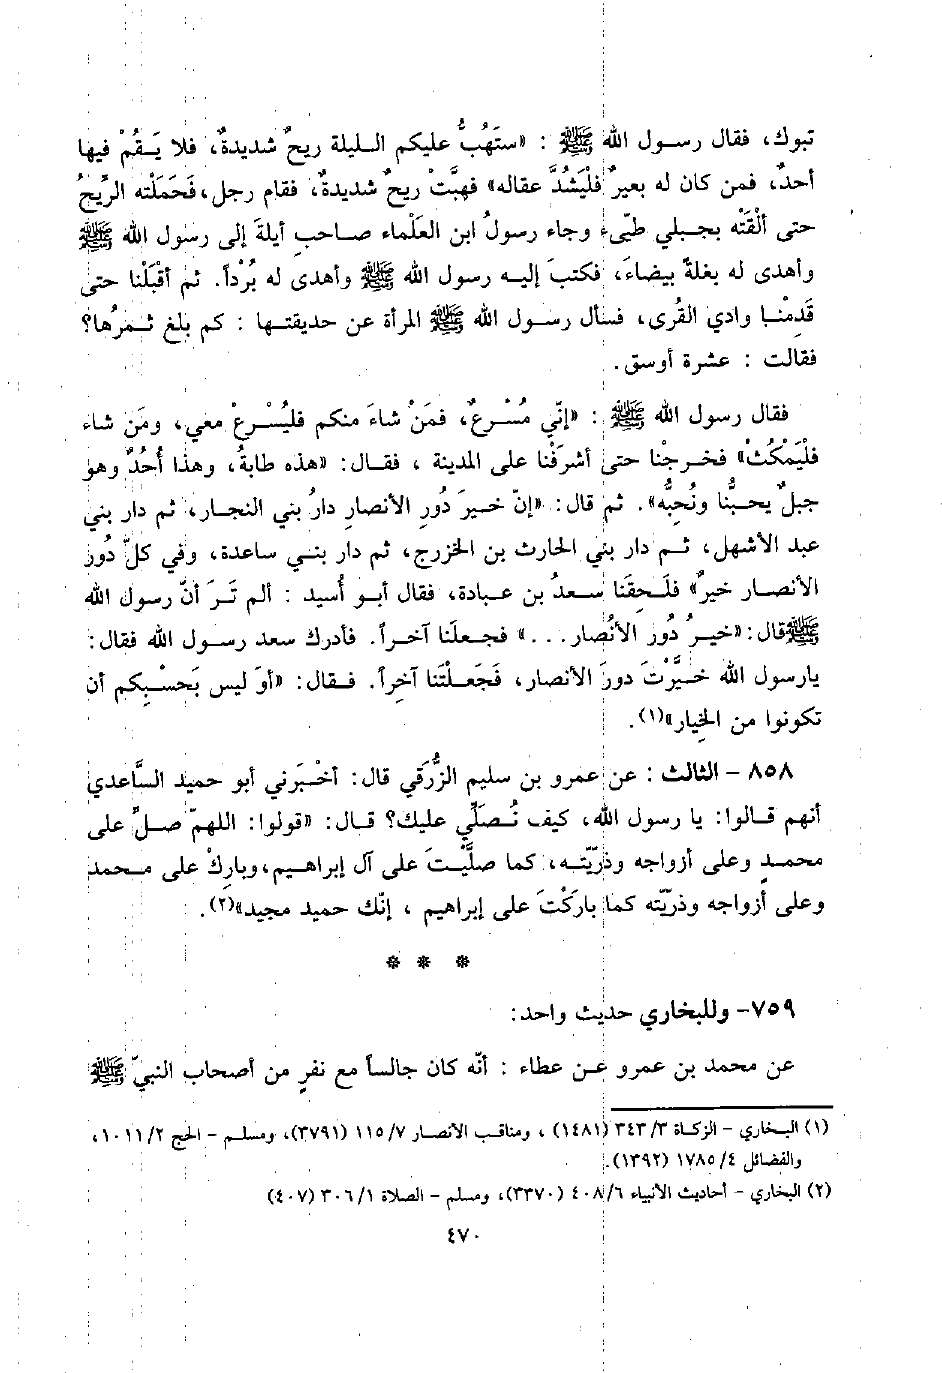 تبوك، فقال رسول الله ﷺ : «ستَهُبُّ عليكم الليلة ريحٌ شديدةٌ، فلا يَقُمْ فيها
أحدٌ، فمن كان له بعيرٌ فليَشُدَّ عقاله» فهبَّتْ ريحٌ شديدةٌ، فقام رجل، فَحَمَلَته الرّيحُ
حتى ألْقَتْه بجبلي طيّىء وجاء رسولُ ابن العَلْماء صاحبِ أيلةَ إلى رسول الله ﷺ
وأهدى له بغلةً بيضاءَ، فكتب إليه رسول الله ﷺ وأهدى له بُرْداً. ثم أقبَلْنا حتى
قَدِمْنا وادي القُرى، فسأل رسول الله ﷺ المرأة عن حديقتها : كم بلغ ثمرُها؟
فقالت : عشرة أوسق.
فقال رسول الله ﷺ : «إنّي مُسْرعٌ، فمَنْ شاءَ منكم فليُسْرعْ معي، ومَن شاء
فلْيَمْكُثْ» فخرجْنا حتى أشرَفْنا على المدينة ، فقال: «هذه طابةُ، وهذا أُحُدٌ وهو
جبلٌ يحبُّنا ونُحِبُّه». ثم قال: «إنّ خيرَ دُورِ الأنصارِ دارُ بني النجار، ثم دار بني
عبد الأشهل، ثم دار بني الحارث بن الخزرج، ثم دار بني ساعدة، وفي كلّ دُورِ
الأنصار خيرٌ» فلَحِقَنا سعدُ بن عبادة، فقال أبو أُسيد : ألم تَرَ أنّ رسول الله
ﷺ قال: «خيرُ دُورِ الأنْصار...» فجعلَنا آخراً. فأدرك سعد رسول الله فقال:
يارسول الله خَيَّرْتَ دورَ الأنصار، فَجَعلْتَنا آخراً. فقال: «أوَ ليس بَحسْبِكم أن
تكونوا من الخِيار»(١).
٨٥٨ - الثالث : عن عمرو بن سليم الزُّرَقي قال: أخْبَرني أبو حميد السَّاعدي
أنهم قالوا: يا رسول الله، كيف نُصَلِّي عليك؟ قال: «قولوا: اللهمّ صلِّ على
محمدٍ وعلى أزواجه وذرّيّته، كما صلَّيْتَ على آل إبراهيم، وبارِكْ على محمد
وعلى أزواجه وذريّته كما باركْتَ على إبراهيم ، إنّك حميد مجيد»(٢).
* * *
٧٥٩- وللبخاري حديث واحد:
عن محمد بن عمرو عن عطاء : أنّه كان جالساً مع نفرٍ من أصحاب النبيّ ﷺ
(١) البخاري - الزكاة ٣/ ٣٤٣ (١٤٨١) ، ومناقب الأنصار ٧/ ١١٥ (٣٧٩١)، ومسلم - الحج ٢/ ١٠١١،
والفضائل ٤/ ١٧٨٥ (١٣٩٢).
(٢) البخاري - أحاديث الأنبياء ٦/ ٤٠٨ (٣٣٧٠)، ومسلم - الصلاة ١/ ٣٠٦ (٤٠٧)
٤٧٠